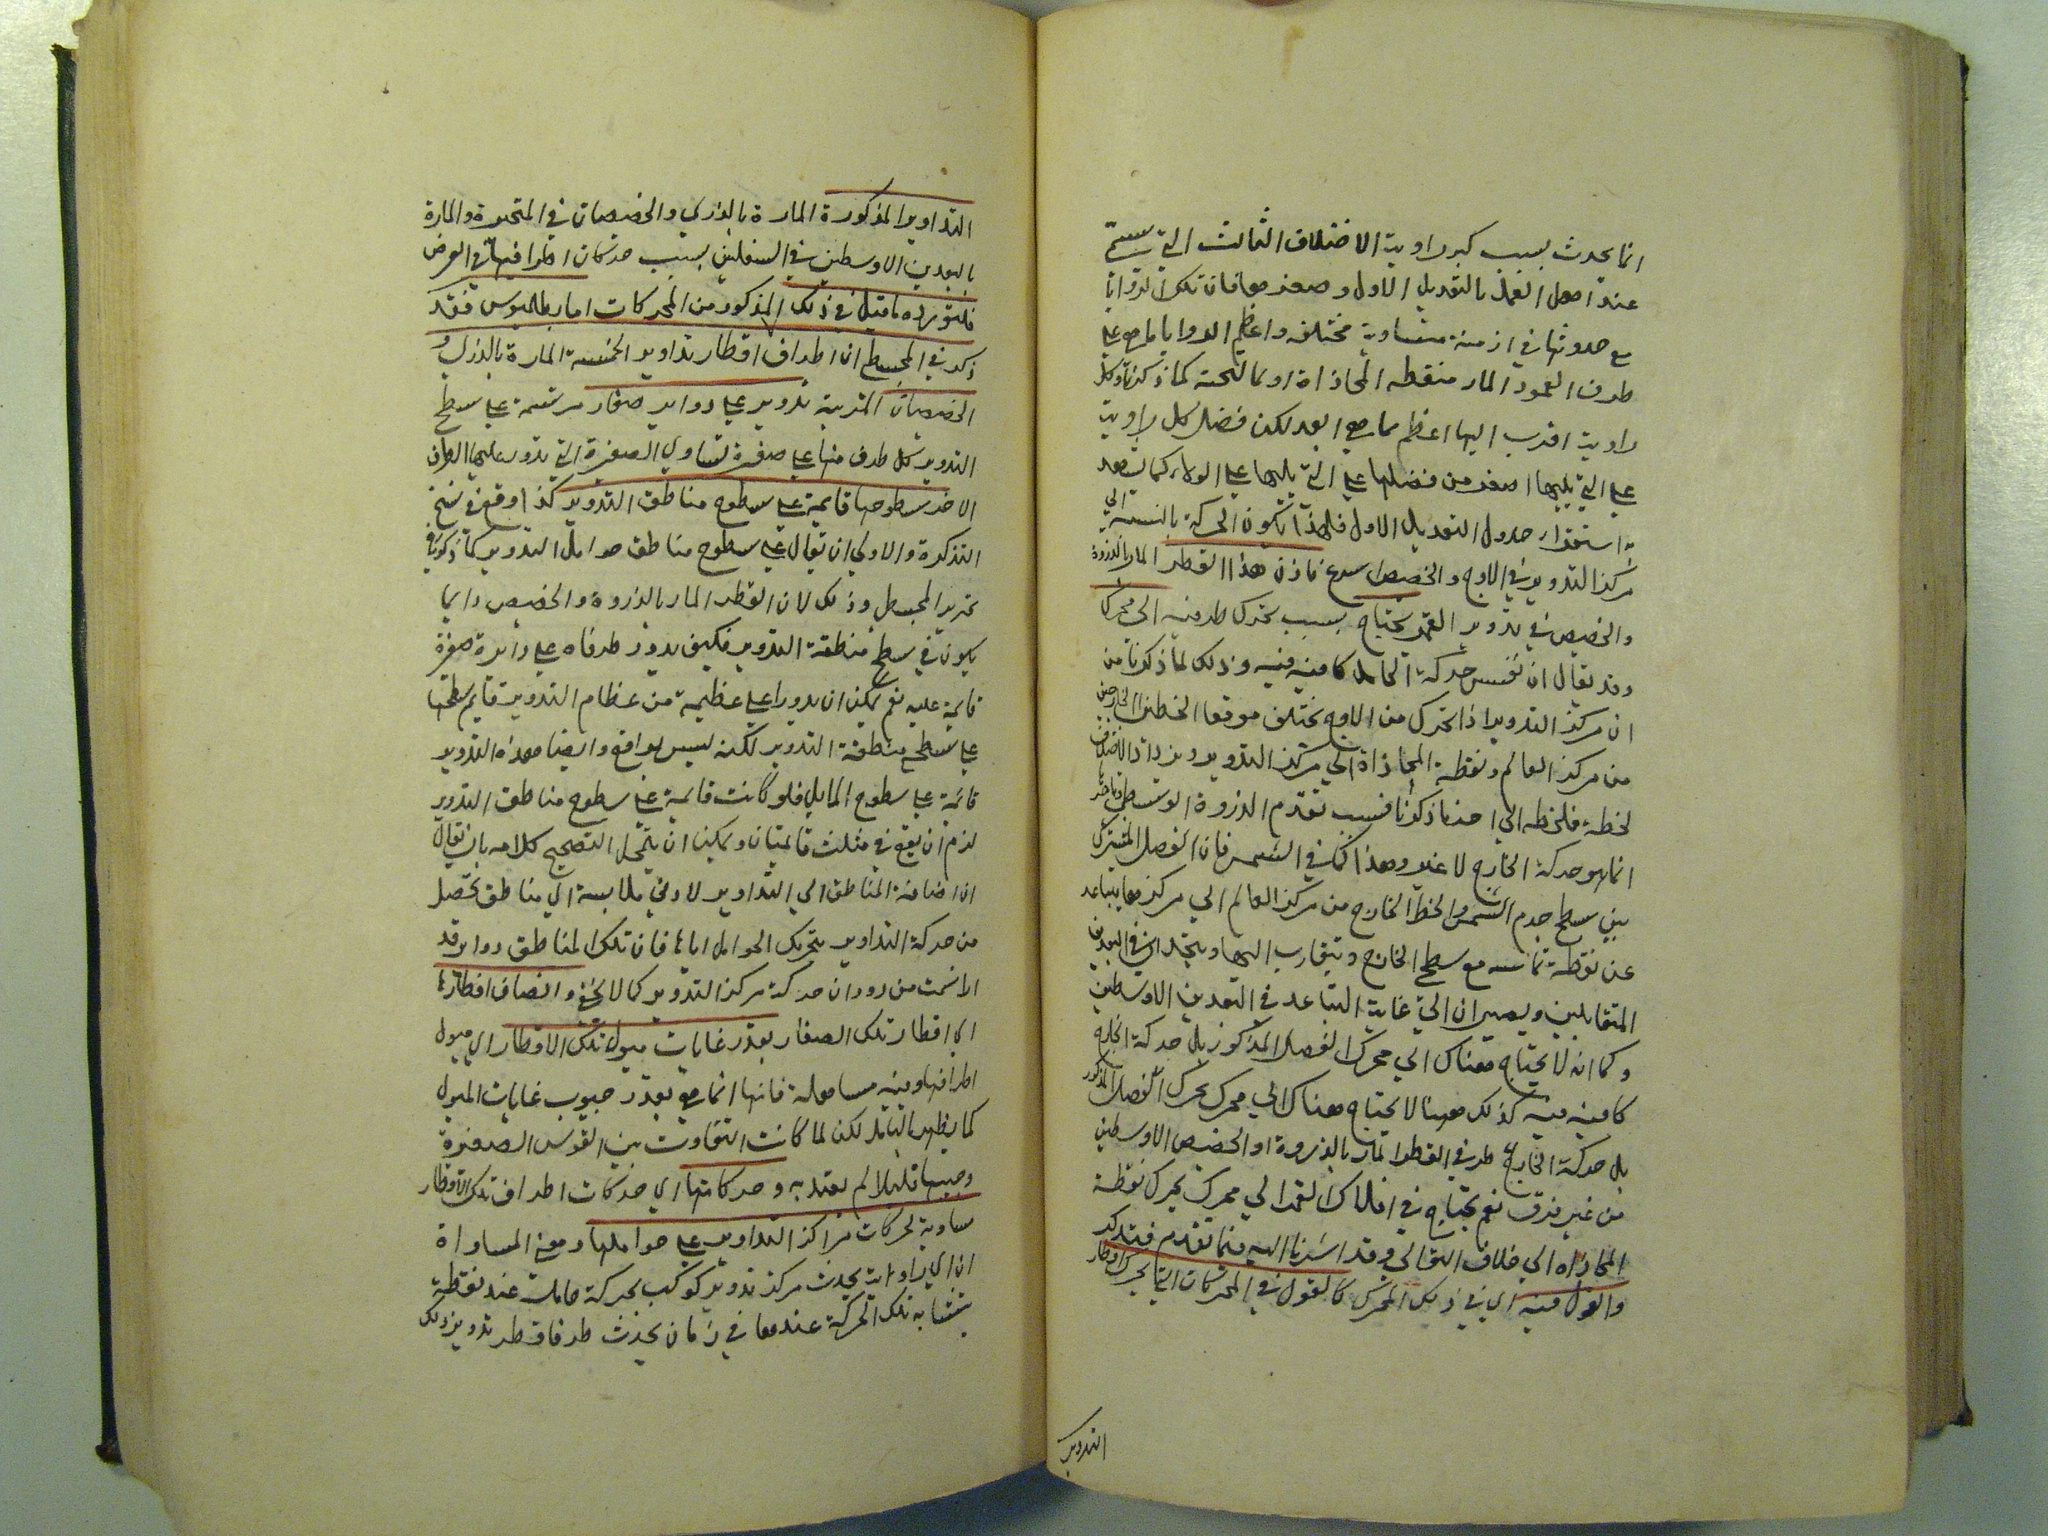 انما يحدث بسبب كبر زاوية الاختلاف الثالث التي تسمى
عند اهل العمل بالتعديل الاول وصغرها فان تلك الزوايا
مع حدوثها في ازمنة متساوية مختلفة واعظم الزوايا ما هو على
طرف العمود المار بنقطة المحاذاة او ما تحته كما ذكرنا وكل
زاوية اقرب اليها اعظم مما هي ابعد لكن فضل كل زاوية
على التي يليها اصغر من فضلها على التي يليها على الولاء كما يشهد
به استقراء جدول التعديل الاول فلهذا تكون الحركة بالنسبة الى
مركز التدوير في الاوج والحضيض اسرع فاذن هذا القطر المار بالذروة
والحضيض في تدوير القمر يحتاج بسبب تحرك طرفيه الى محرك
وقد يقال ان نفس حركة الحامل كافية فيه وذلك لما ذكرنا من
ان مركز التدوير اذا تحرك من الاوج يختلف موقعا الخطين الخارجين
من مركز العالم ونقطة المحاذاة الى مركز التدوير ويزداد الاختلاف
لحظة فلحظة الى اخر ما ذكرنا فسبب تقدم الذروة الوسطى وتاخرها
انما هو حركة الخارج لا غير وهذا كما في الشمس فان الفصل المشترك
بين سطح جرم الشمس والخط الخارج من مركز العالم الى مركزها يتباعد
عن نقطة تماسه مع سطح الخارج ويتقارب اليها ويتحدان في البعدين
المتقابلين ويصيران الى غاية التباعد في البعدين الاوسطين
وكما انه لا يحتاج هناك الى محرك الفصل المذكور بل حركة الخارج
كافية فيه كذلك ههنا لا يحتاج هناك الى محرك يحرك الفصل المذكور
بل حركة الخارج طرفي القطر المار بالذروة او الحضيض الاوسطين
من غير فرق نعم يحتاج في افلاك القمر الى محرك يحرك نقطة
المحاذاة الى خلاف التوالي وقد اشرنا اليه فيما تقدم فتذكر
والقول فيه اي في ذلك المحرك كالقول في المحركات التي تحرك اقطار
التدوير
التداوير المذكورة المارة بالذرى والحضيضات في المتحيرة والمارة
بالبعدين الاوسطين في السفليين بسبب حركات اطرافها في العرض
فلنورده ما قيل في ذلك المذكور من المحركات اما بطلميوس فقد
ذكر في المجسطي ان اطراف اقطار تداوير الخمسة المارة بالذرى و
الحضيضات المرئية تدوير على دواير صغار مرتسمة على سطح
التدوير كل طرف منها على صغيرة تساوي الصغيرة التي يدور عليها الطرف
الاخر سطوحها قايمة على سطوح مناطق التدوير كذا وقع في نسخ
التذكرة والاولى ان يقال على سطوح مناطق حوامل التدوير كما ذكرناه في
تحرير المجسطي وذلك لان القطر المار بالذروة والحضيض دايما
يكون في سطح منطقة التدوير فكيف يدور طرفاه على دايرة صغيرة
قايمة عليه نعم يمكن ان يدورا على عظيمة من عظام التدوير قايم سطحها
على سطح منطقة التدوير لكنه ليس بواقع وايضا هذه التدوير
قائمة على سطوح المايل فلو كانت قايمة على سطوح مناطق التدوير
لزم ان يقع في مثلث قائمتان ويمكن ان يتمحل لتصحيح كلامه بان يقال
ان اضافة المناطق الى التداوير لادنى ملابسة اي مناطق تحصل
من حركة التداوير بتحريك الحوامل اياها فان تلك المناطق دواير قد
ارتسمت من دوران حركة مركز التدوير كما لا يخفى وانصاف اقطارها
اي اقطار تلك الصغار بقدر غايات ميول تلك الاقطار اي ميول
اطرافها وفيه مساهلة فانها انما هي بقدر جيوب غايات الميول
كما يظهر بالتامل لكن لما كانت التفاوت بين القوس الصغيرة
وجيبها قليلا لم يعتد به وحركاتها اي حركات اطراف تلك الاقطار
مساوية لحركات مراكز التداوير على حواملها ومعنى المساواة
ان اي زاوية يحدث مركز تدوير كوكب بحركة حاملة عند نقطة
يتشابه تلك الحركة عندها في زمان يحدث طرفا قطر تدوير ذلك